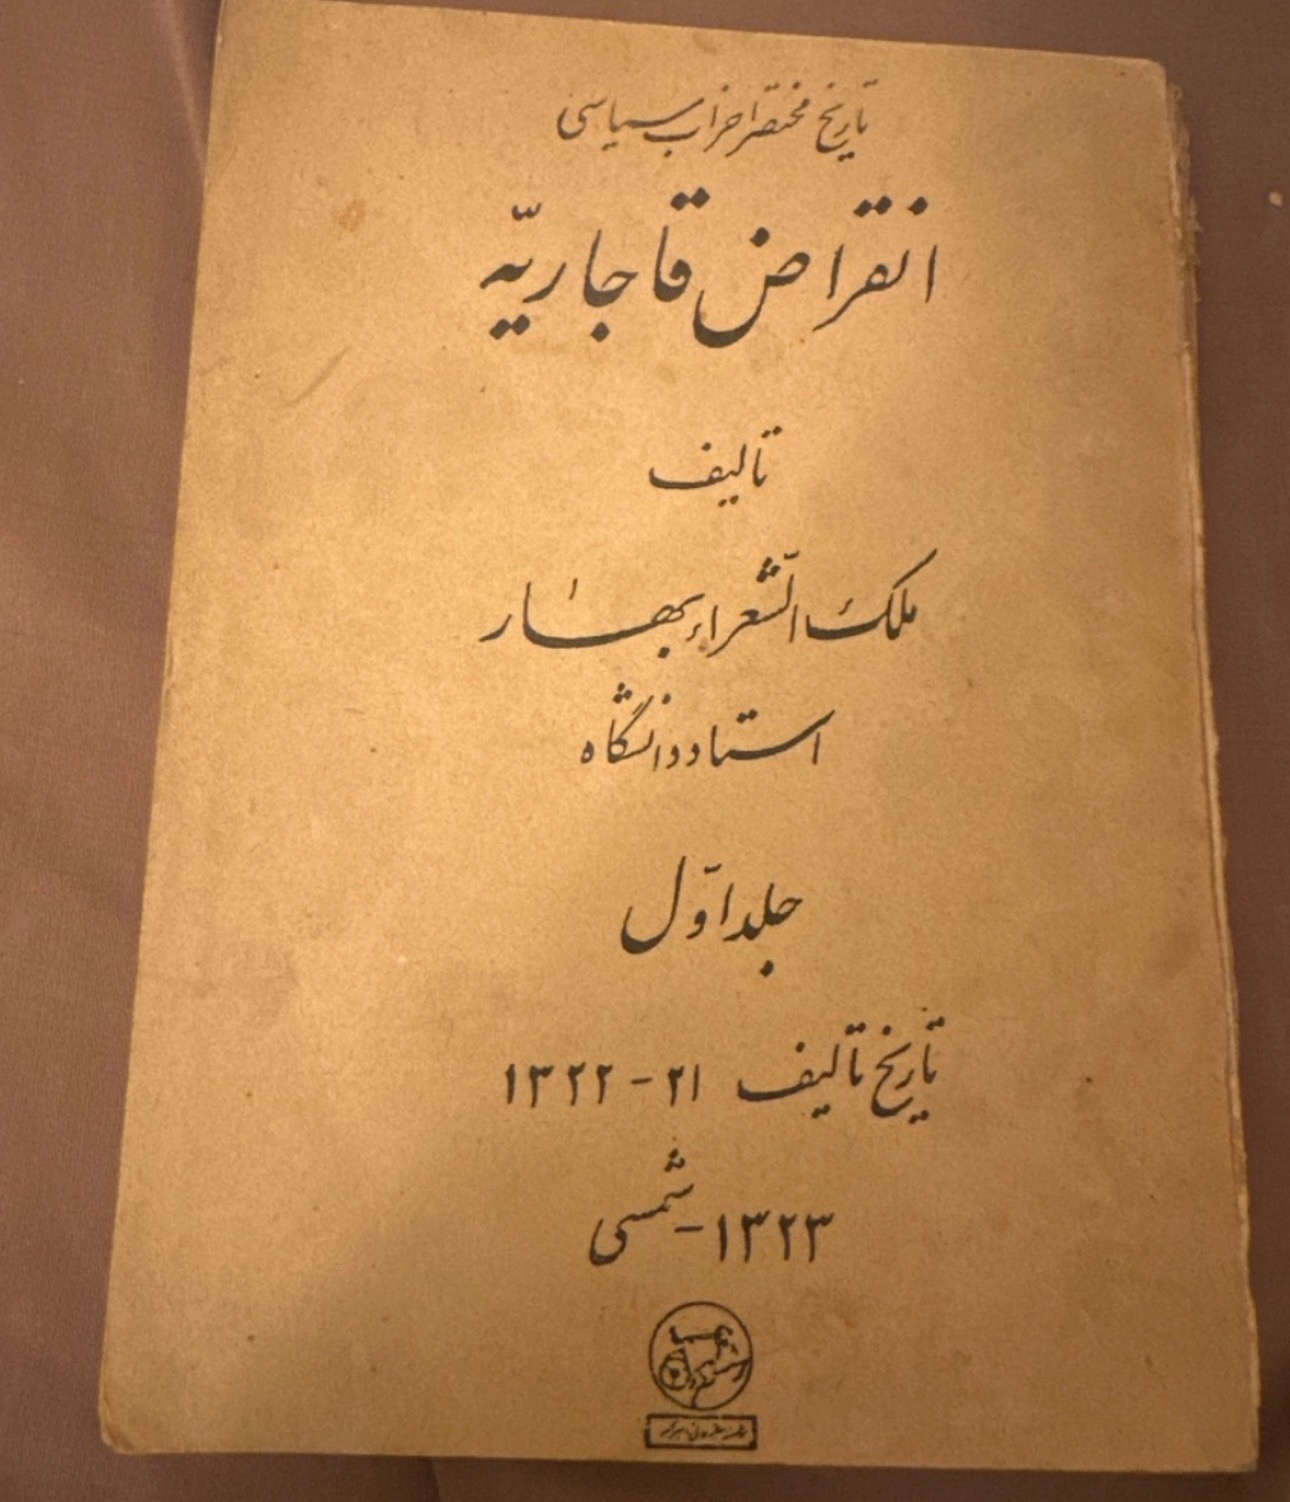 تاریخ مختصر احزاب سیاسی
انقراض قاجاریّه
تألیف
ملک الشّعراء بهار
استاد دانشگاه
جلد اوّل
تاریخ تألیف ۲۱ - ۱۳۲۲
۱۳۲۳ - شمسی